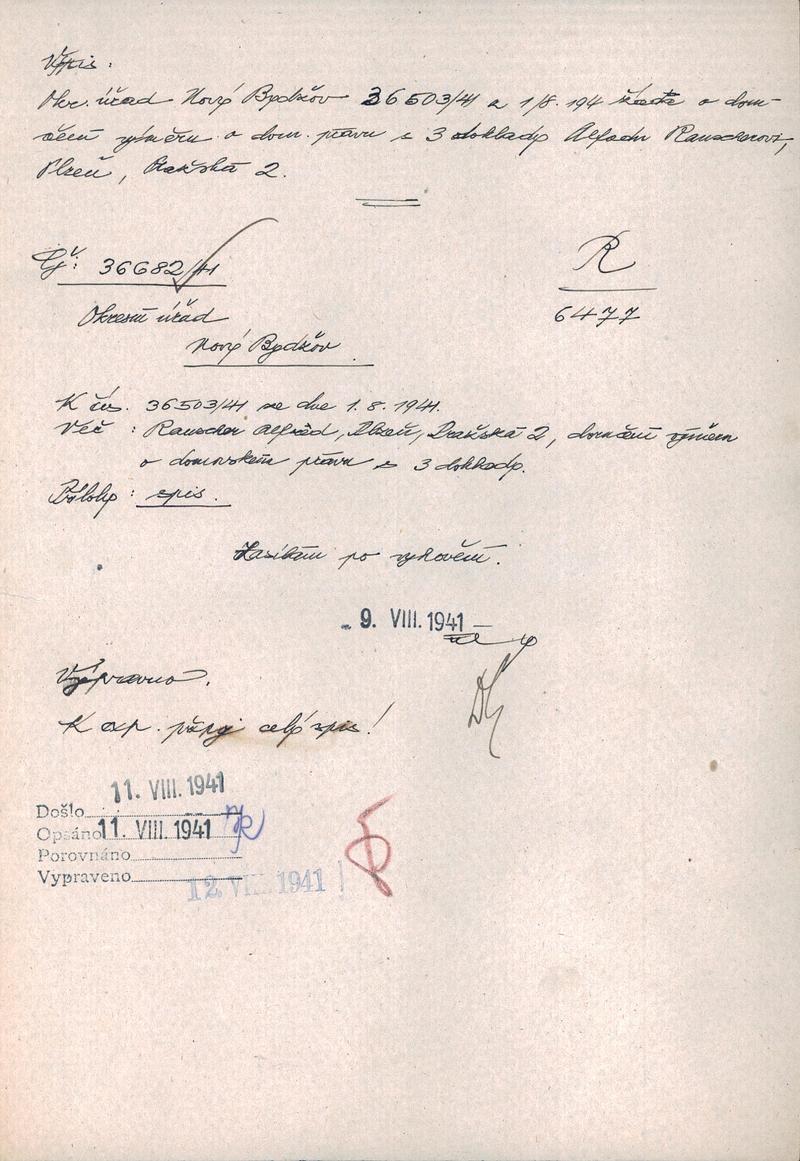 Výpis:
Okr. úřad Nový Bydžov 36503/41 z 1/8. 194 žádá o doru-
čení výměru o dom. právu s 3 doklady Alfedu Rauscherovi,
Plzeň, Pražská 2.
Čj: 36682/41
R
6477
Okresní úřad
Nový Bydžov
K čís. 36503/41 ze dne 1.8.1941.
Věc : Rauscher Alfréd, Plzeň, Pražská 2, doručení výměru
o domovském právu s 3 doklady.
Přílohy : spis.
Zasílám po vyhovění.
9. VIII. 1941
Výpravna.
K exp. připoj celý spis!
11. VIII. 1941
Došlo
Opsáno 11. VIII. 1941
Porovnáno
Vypraveno 12. VIII. 1941